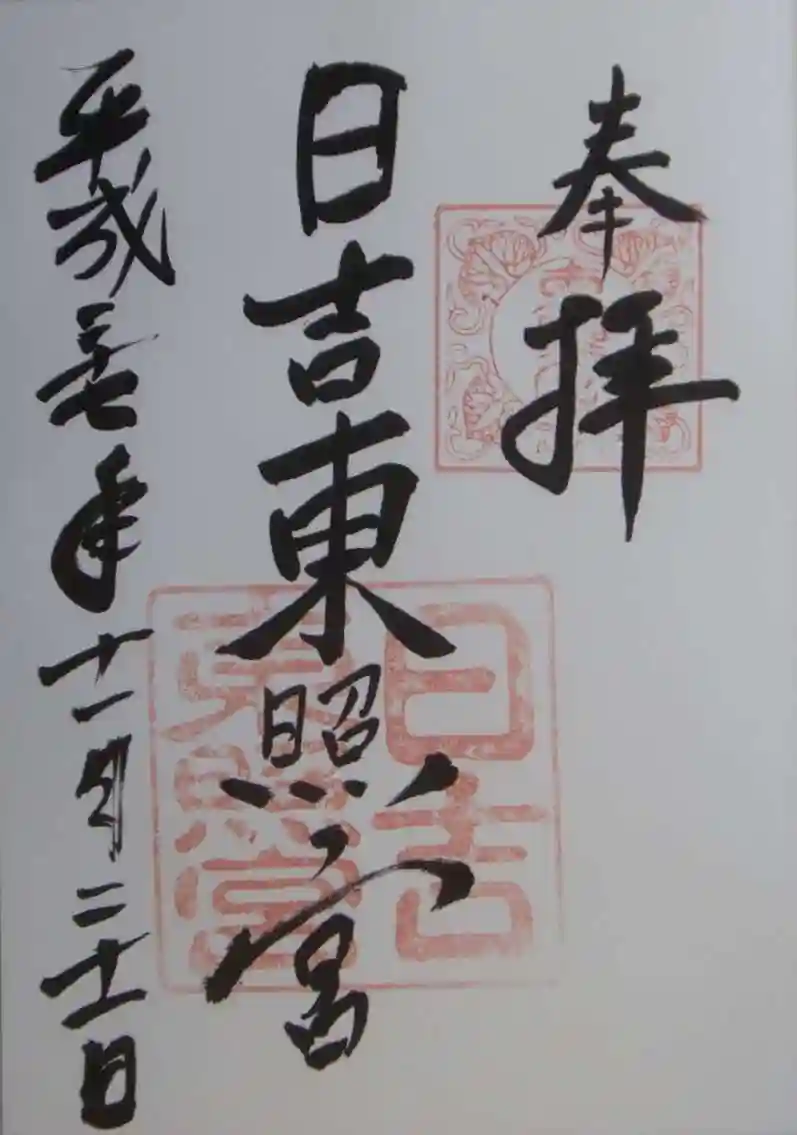 奉拝
日吉東照宮
平成二十七年十一月二十一日
日吉
東照宮